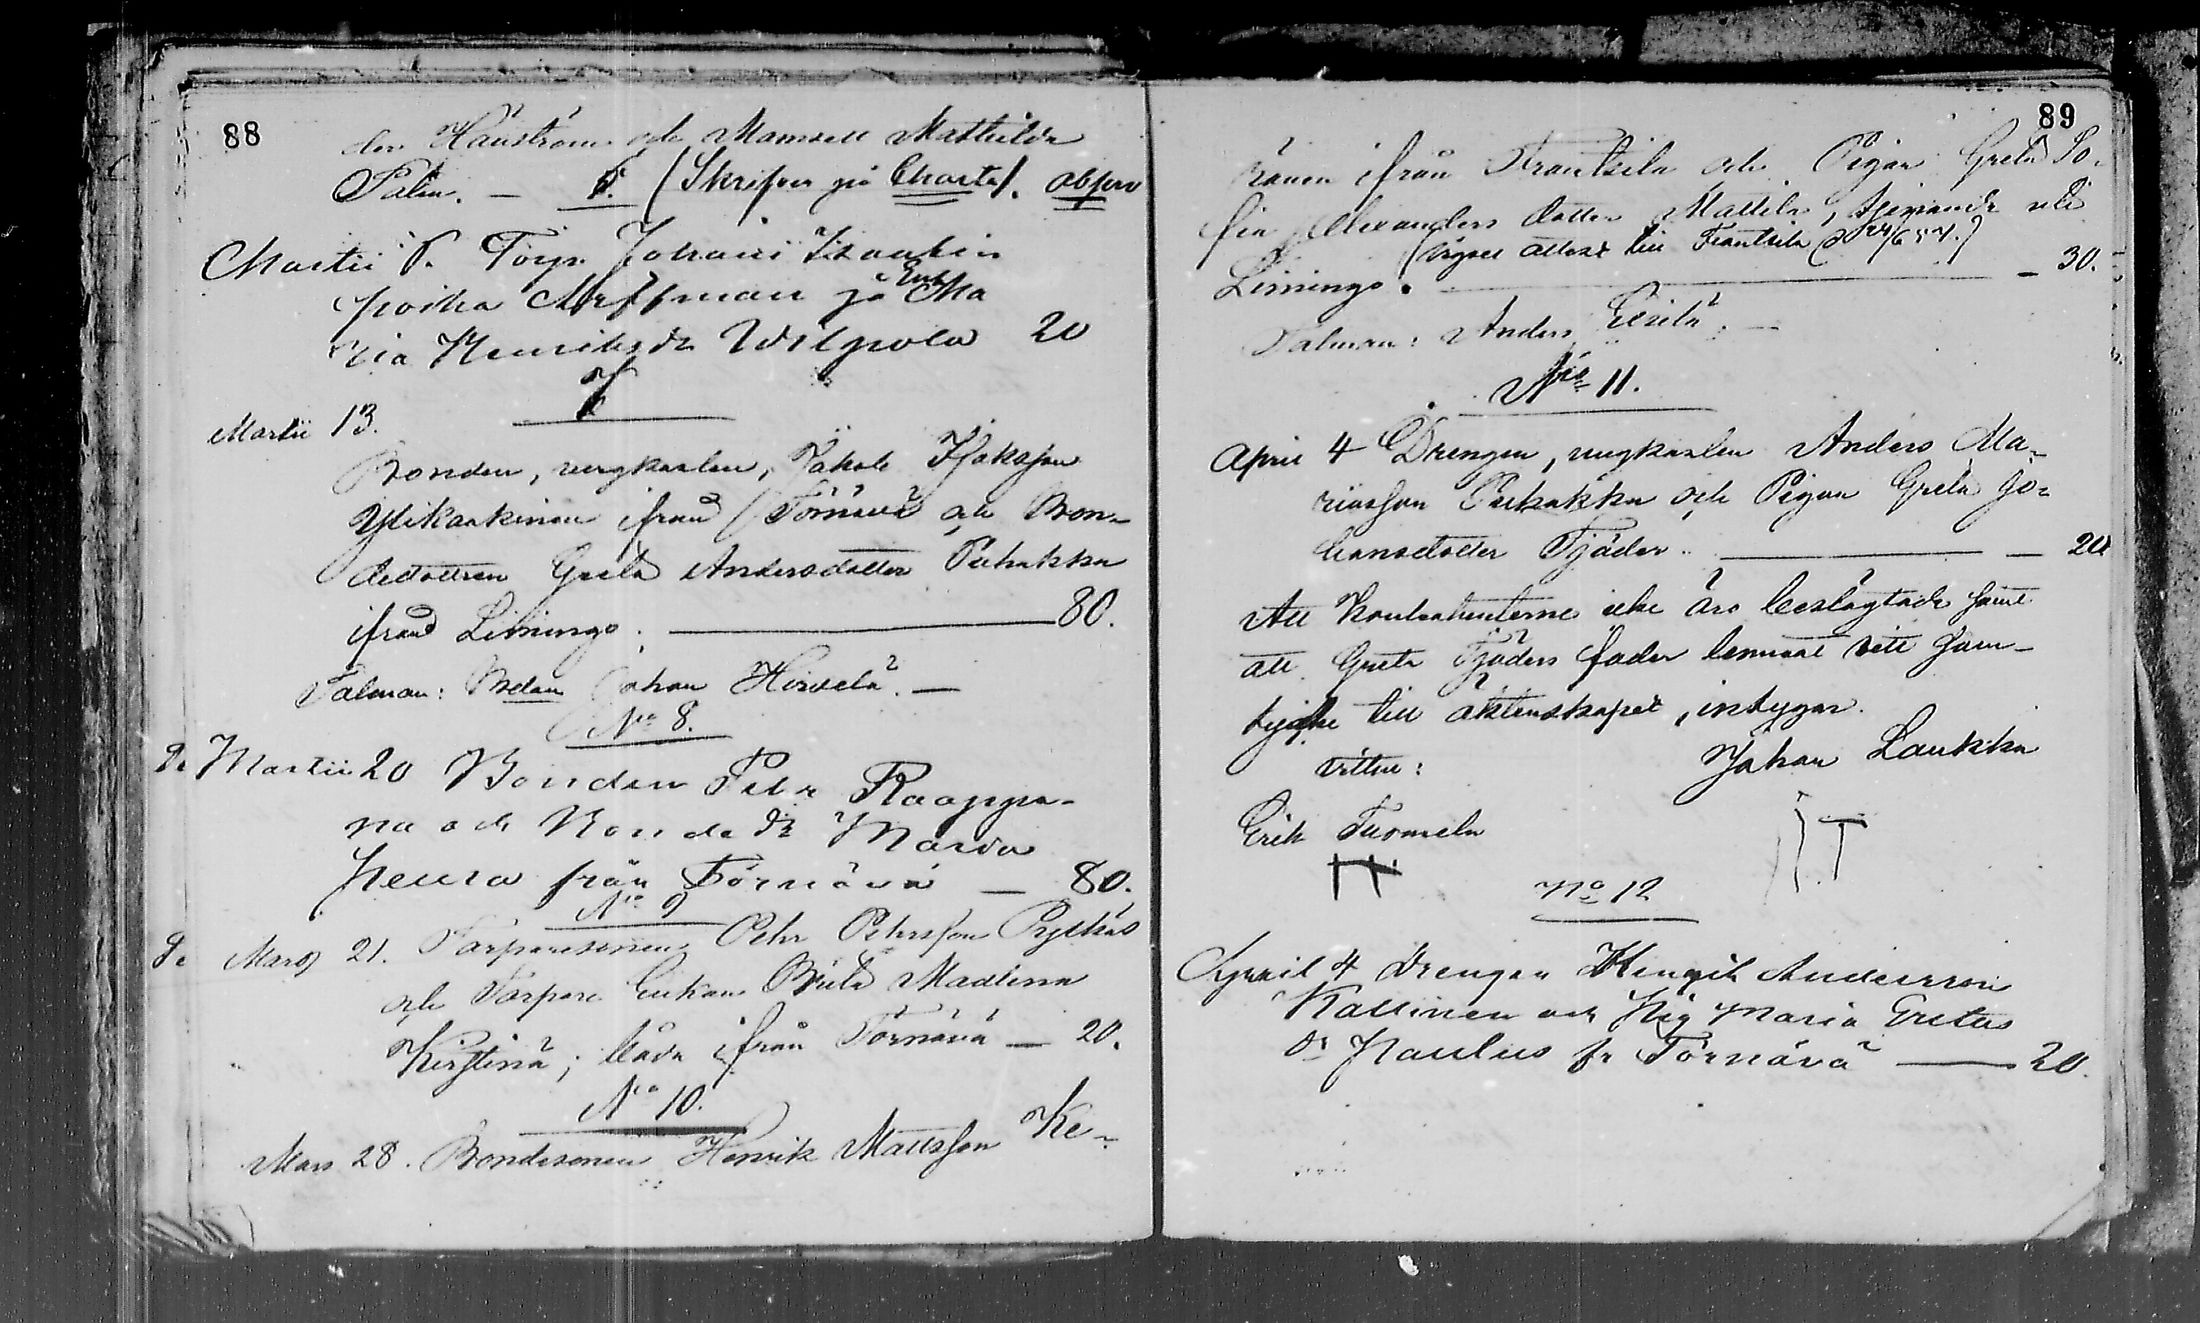 88
den Hänström och Mamsell Mathilda
Palin. — 6. (Skrifves på Charta). observ
Martii 6. Torp. Johan Isaaks
poika Arffman ja Enk. Ma
ria Henriksdr Wilpola 20
7
Martii 13.
Bonden, ungkarlen, Jakob Isaksson
Ylikaakinen ifrån Törnävä och Bon-
dedottren Greta Andersdotter Pehakka
ifrån Limingo. — 80.
Talman: Johan Hirvelä. —
No 8.
Martii 20 Bonden Petr Raappa-
na och Bondedr Maria
Heura från Törnävä — 80.
No 9
Mars 21. Torparesonen Pehr Pehrsson Pylkäs
och Torpare Enkan Brita Madlena
Kirstinä, båda ifrån Törnävä — 20.
No 10.
Mars 28. Bondesonen Henrik Mattsson Ke-
89
ränen ifrån Frantsila och Pigan Greta So-
fia Alexanders dotter Mattila, tjenande uti
(utgett attest till Frantsila d 24/6 57.)
Limingo. — 30.
Talman: Anders Eksilä. —
No 11.
April 4 Drengen, ungkarlen Anders Ma-
riasson Pehakka och Pigan Greta Jo-
hansdotter Fjäder. — 20
Att Kontrahenterne icke äro beslägtade samt
att Greta Fjäders fader lemnat sitt sam-
tycke till äktenskapet, intygar.
vittne: Johan Laukka
Erik Tuomela
No 12
April 4 Drengen Hengrik Andersson
Kallinen och Pig Maria Gretas
dr Paulus fr Törnävä — 20.